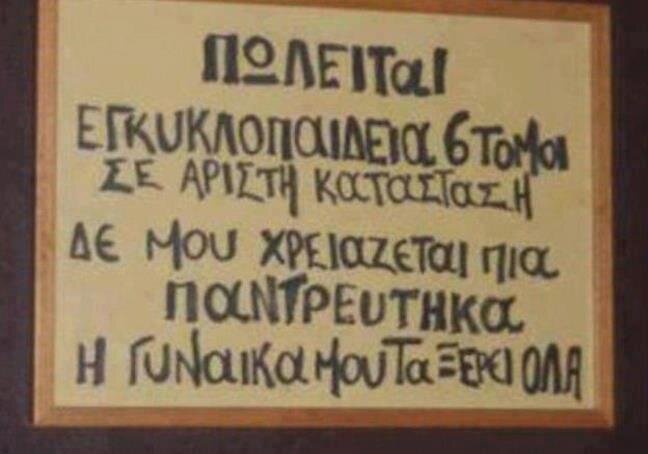 ΠΩΛΕΙΤαΙ
ΕΓΚΥΚΛΟΠαΙΔΕΙα 6 ΤΟΜΟΙ
ΣΕ ΑΡΙΣΤΗ ΚαΤαΣΤαΣΗ
ΔΕ ΜΟΥ ΧΡΕΙαΖΕΤαΙ ΠΙα
ΠαΝΤΡΕΥΤΗΚα
Η ΓΥΝαΙΚα ΜΟΥ Τα ΞΕΡΕΙ ΟΛΑ